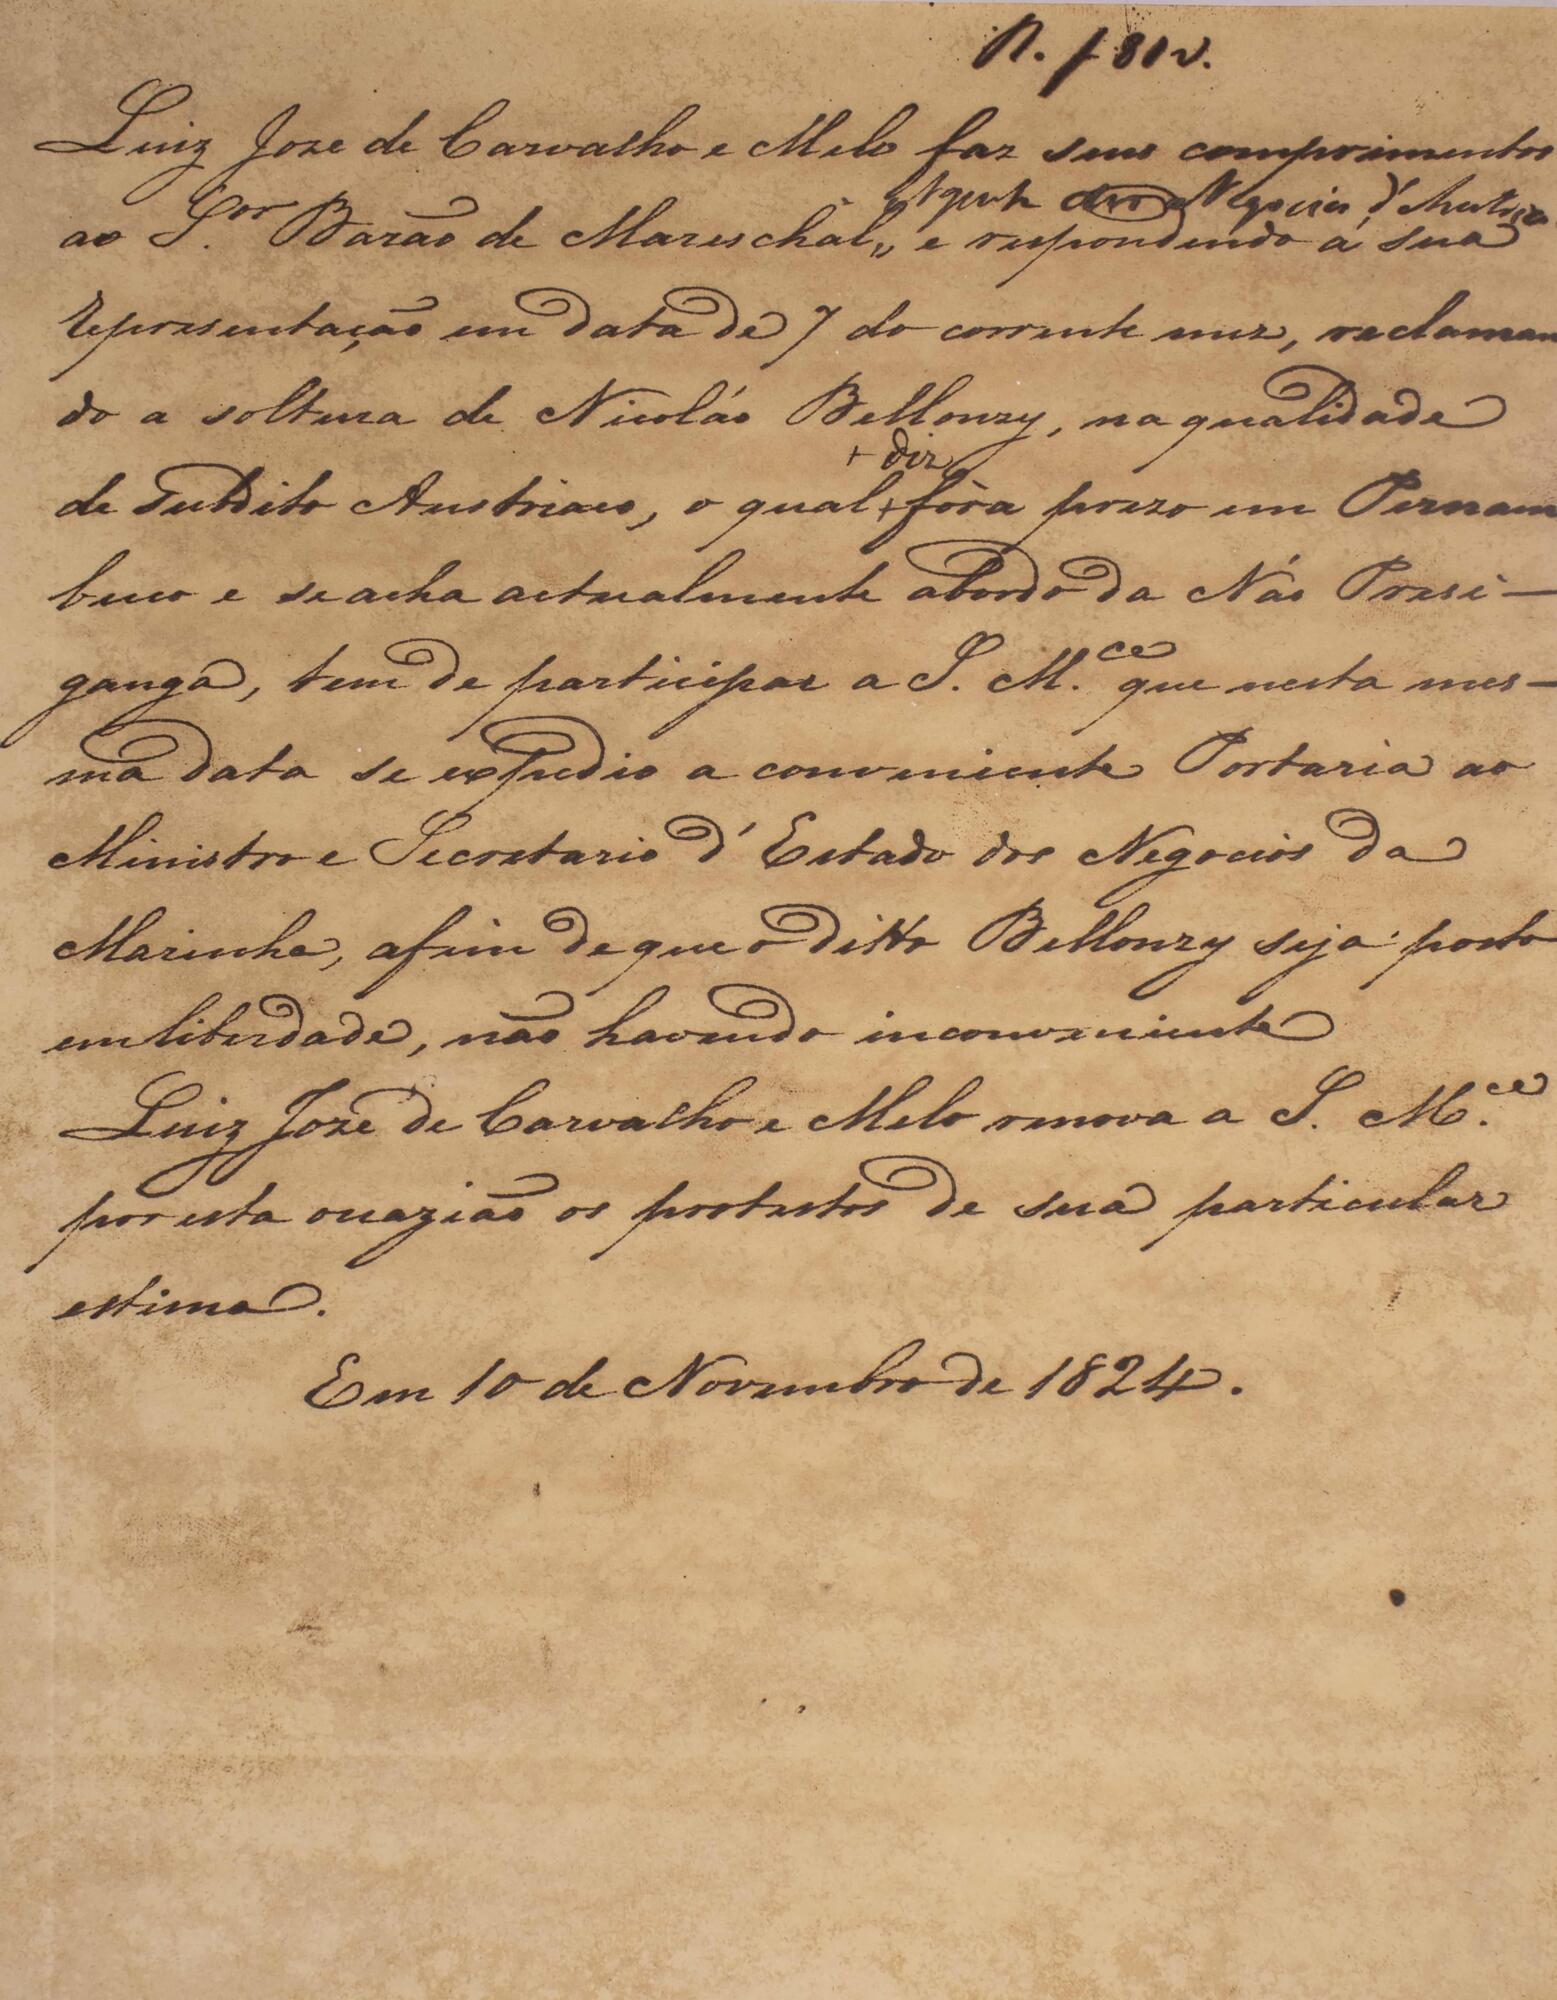 R. f 81 v.
Luiz Joze de Carvalho e Melo faz seus comprimentos
Agente dos Negocios d'Austria
ao S.or Barão de Mareschal,, e respondendo á sua
representação em data de 7 do corrente mez, reclaman
do a soltura de Nicoláo Bellonzy, na qualidade
+ diz
de subdito Austriaco, o qual + fôra prezo em Pernam
buco e se acha actualmente abordo da Náo Presi-
ganga, tem de participar a S. M.ce que nesta mes-
ma data se expedio a conveniente Portaria ao
Ministro e Secretario d'Estado dos Negocios da
Marinha, afim de que o ditto Bellonzy seja posto
em liberdade, não havendo inconveniente
Luiz Joze de Carvalho e Melo renova a S. M.ce
por esta occazião os protestos de sua particular
estima.
Em 10 de Novembro de 1824.